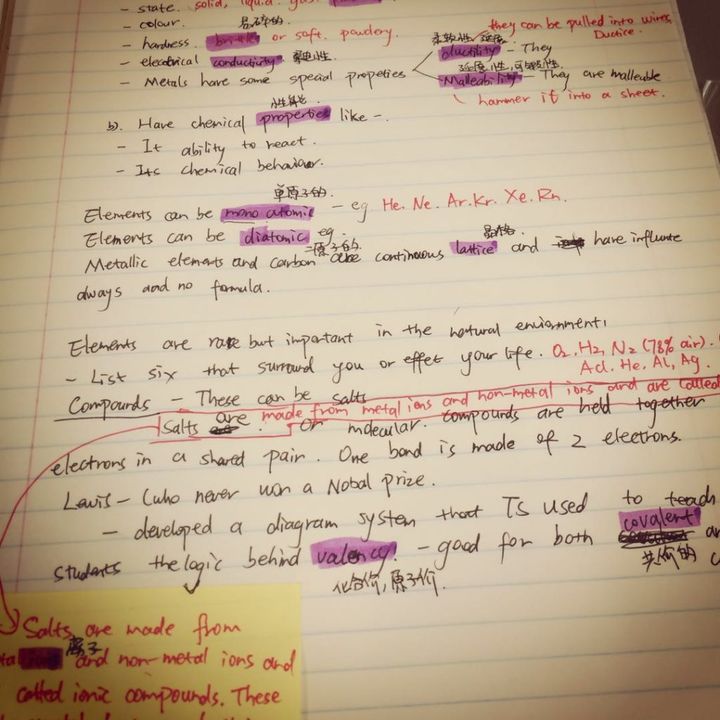 - state. solid, liquid. gas.
- colour. 易碎的.
- hardness. brittle or soft. powdery.
柔软性 延展 they can be pulled into wires
Ductice.
- elecdrical conductivity. 导电性
ductility - They
延展性,可锻性.
- Metals have some special propeties
Malleability - They are malleable
hammer it into a sheet.
性能.
b). Have chemical properties like -.
- It ability to react.
- Its chemical behaviour.
单原子的.
Elements can be mono atomic - eg He. Ne. Ar. Kr. Xe. Rn.
Elements can be diatomic eg.
二原子的. 晶格.
Metallic elements and carbon are continuous lattice and have influnte
always and no formula.
Elements are rare but important in the natural enviornment,
- List six that surround you or effet your life. O2, H2, N2 (78% air).
Acl. He, Al, Ag.
Compounds - These can be salts
Salts are made from metal ions and non-metal ions and are called
or molecular. compounds are held together
electrons in a shared pair. One bond is made of 2 electrons.
Lewis - (who never won a Nobal prize.
- developed a diagram system that Is used to teach
students the logic behind valency. - good for both covalent
化合价,原子价. 共价的
Salts are made from
离子
and non-metal ions and
called ionic compounds. These